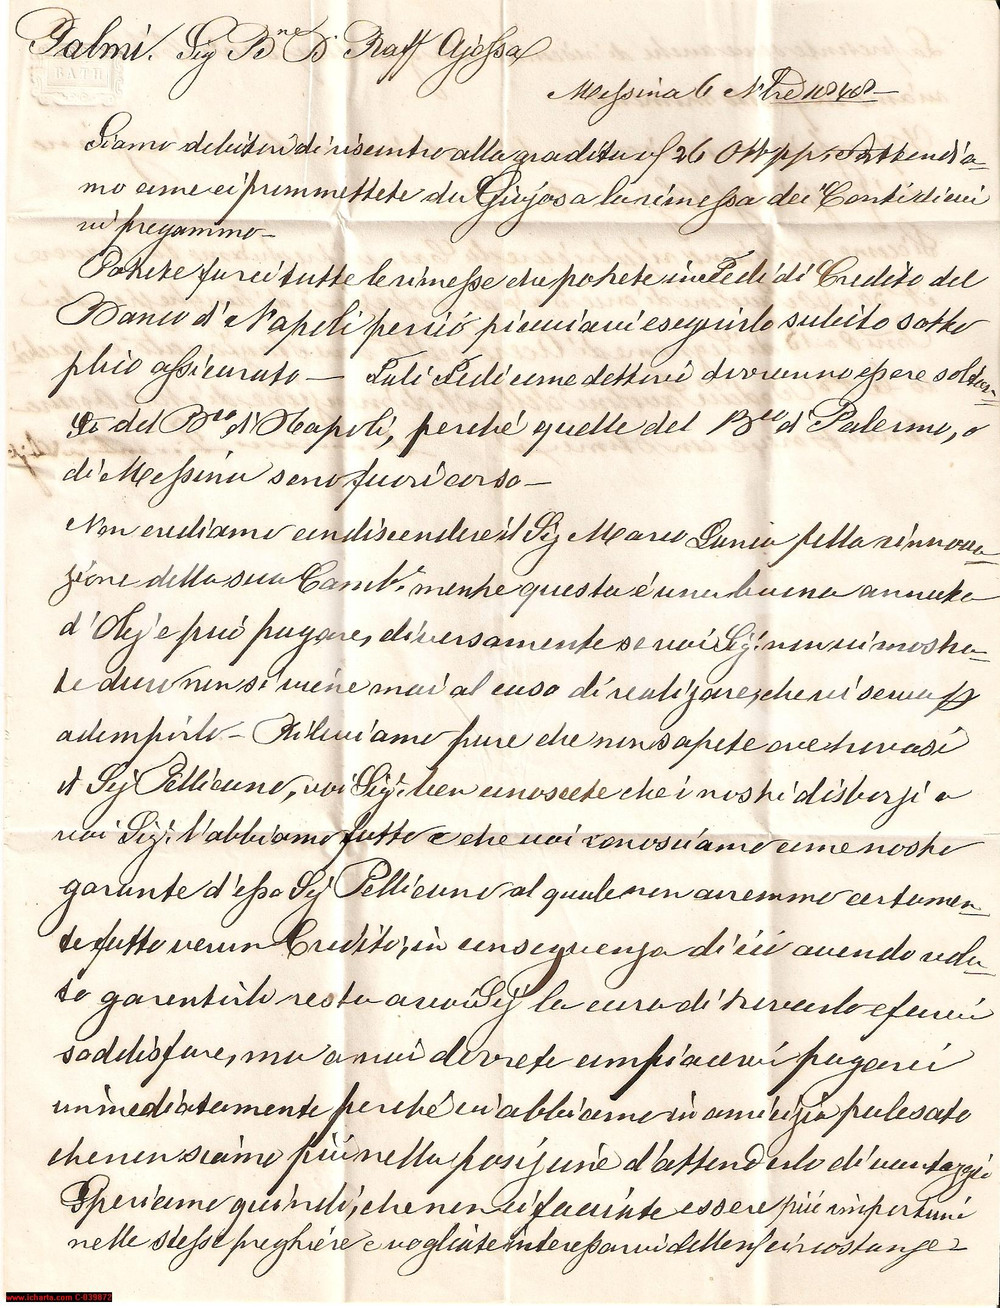 Palmi. Sig Bne D. Raff Ajossa
BATH
Messina 6 Nbre 1848
Siamo debitori di riscontro alla gradita vs 26 Ott pp. Attendia-
mo come ci prommettete da Giojosa la rimessa dei Conti di cui
vi pregammo-
Potete farci tutte le rimesse che potete in Fedi di Credito del
Banco d'Napoli perciò piacciavi eseguirlo subito sotto
plico assicurato — Tali Fedi come dettovi dovranno essere soltan-
to del Bco d'Napoli, perché quelle del Bco d'Palermo, o
di Messina sono fuori corso-
Non crediamo condiscendere il Sig Marco Lania pella rinnova-
zione della sua Camb.e mentre questa è una buona annata
d'Olj e può pagare, diversamente se voi Sig: non vi mostra-
te duro non si viene mai al caso di realizzare, che vi serva p
adempirlo- Rileviamo pure che non sapete ove trovasi
il Sig Pellicano, voi Sig: ben conoscete che i nostri disborzi a
voi Sig: l'abbiamo fatto e che voi conosciamo come nostro
garante d'esso Sig Pellicano al quale non avremmo certamen-
te fatto verun Credito; in conseguenza di ciò avendo volu-
to garentirlo resta a voi Sig la cura di trovarlo e farvi
saddisfare, ma a noi dovrete compiacervi pagarci
immediatamente perché vi abbiamo in amicizia palesato
che non siamo più nella posizione d'attenderlo di vantaggio
Speriamo quindi, che non ci facciate essere più importuni
nelle stesse preghiere e vogliate interessarvi delle ns circostanze-
www.icharta.com C-839872